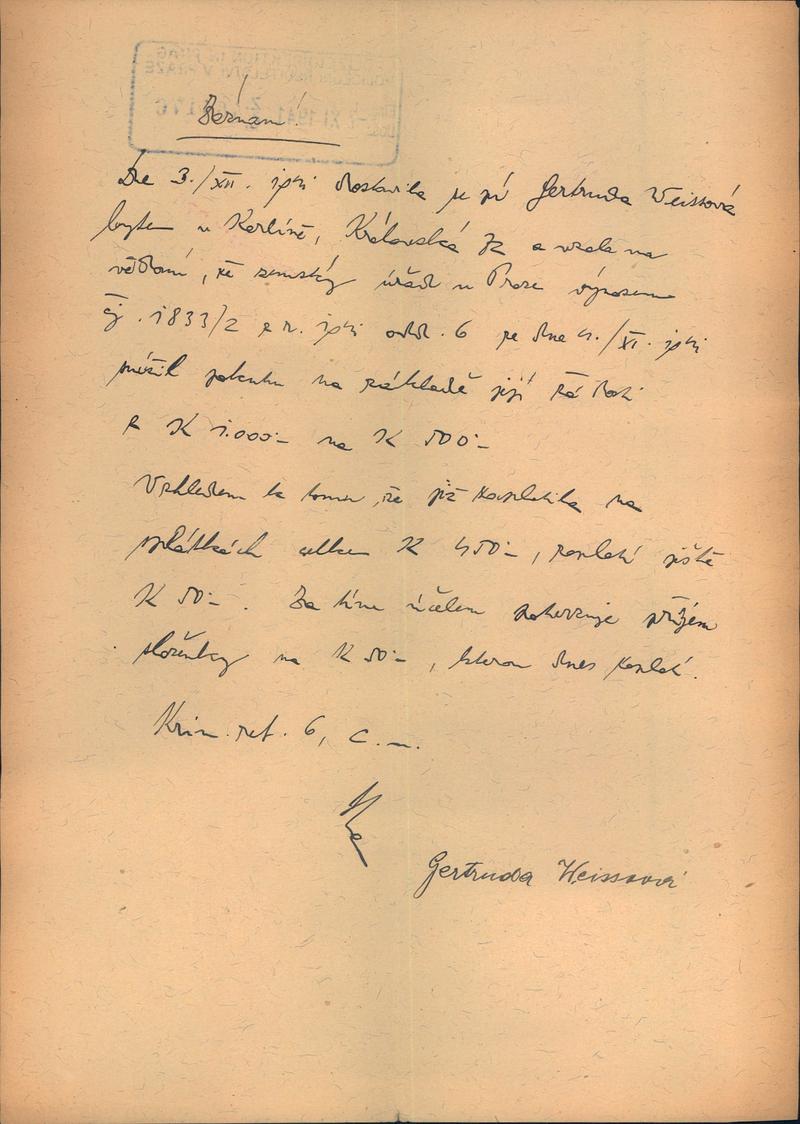 Záznam!
Dne 3./XII. 1941 dostavila se pí Gertruda Weissová
bytem v Karlíně, Královská 72 a vzala na
vědomí, že zemský úřad v Praze výnosem
čj. 1833/2 z r. 1941 odd. 6 ze dne 4./XI. 1941
snížil pokutu na základě její žádosti
z K 1.000·- na K 500·-
Vzhledem k tomu, že již zaplatila na
splátkách celkem K 450·-, zaplatí ještě
K 50·-. Za tím účelem potvrzuje příjem
složenky na K 50·-, kterou dnes zaplatí.
Krim. ref. 6, c. m.
Gertruda Weissová